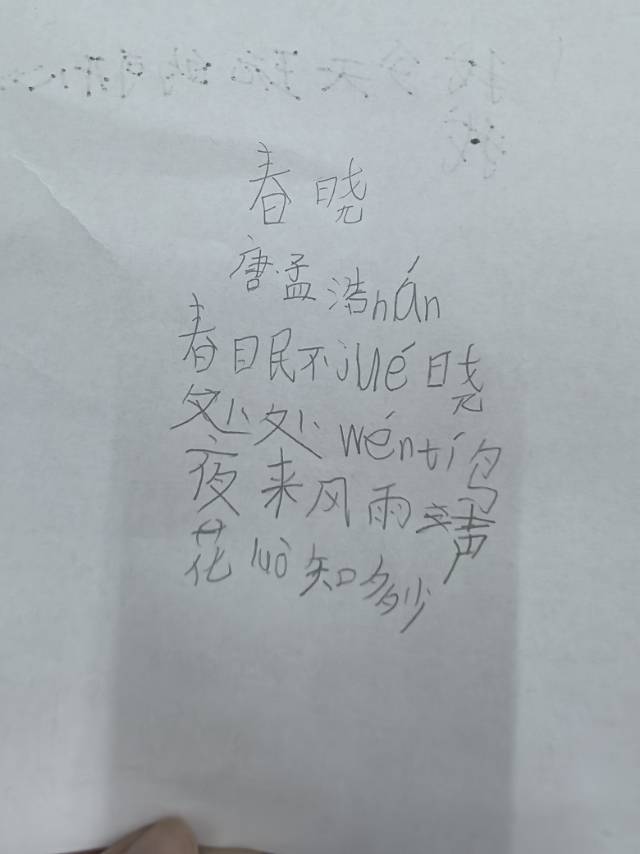 春晓
唐孟浩nán
春日民不jué晓
处处wéntí鸟
夜来风雨声
花luò知多少